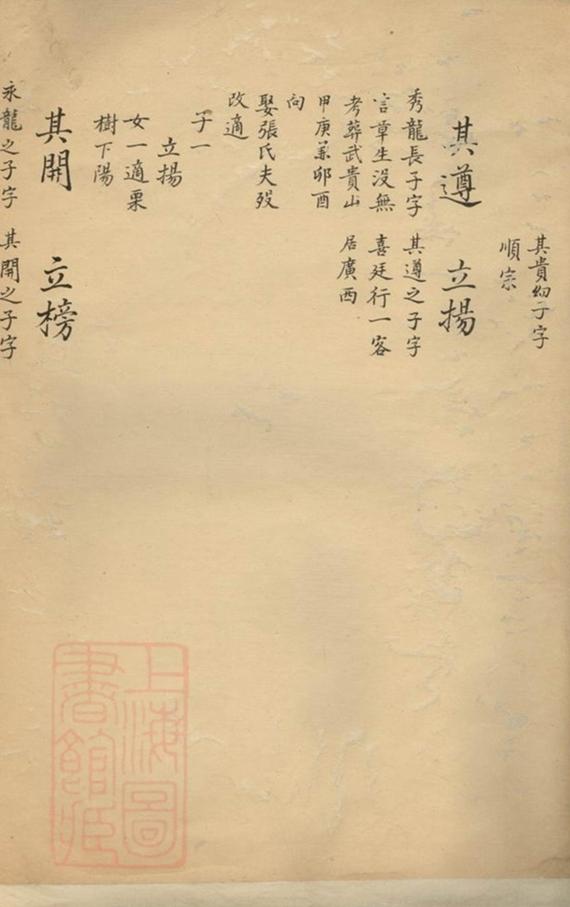 其貴幼子字
順宗
其遵
秀龍長子字
言章生沒無
考葬武貴山
甲庚兼卯酉
向
娶張氏夫歿
改適
子一
立揚
女一適栗
樹下陽
立揚
其遵之子字
喜廷行一客
居廣西
其開
永龍之子字
立榜
其開之子字
上海圖
書館藏